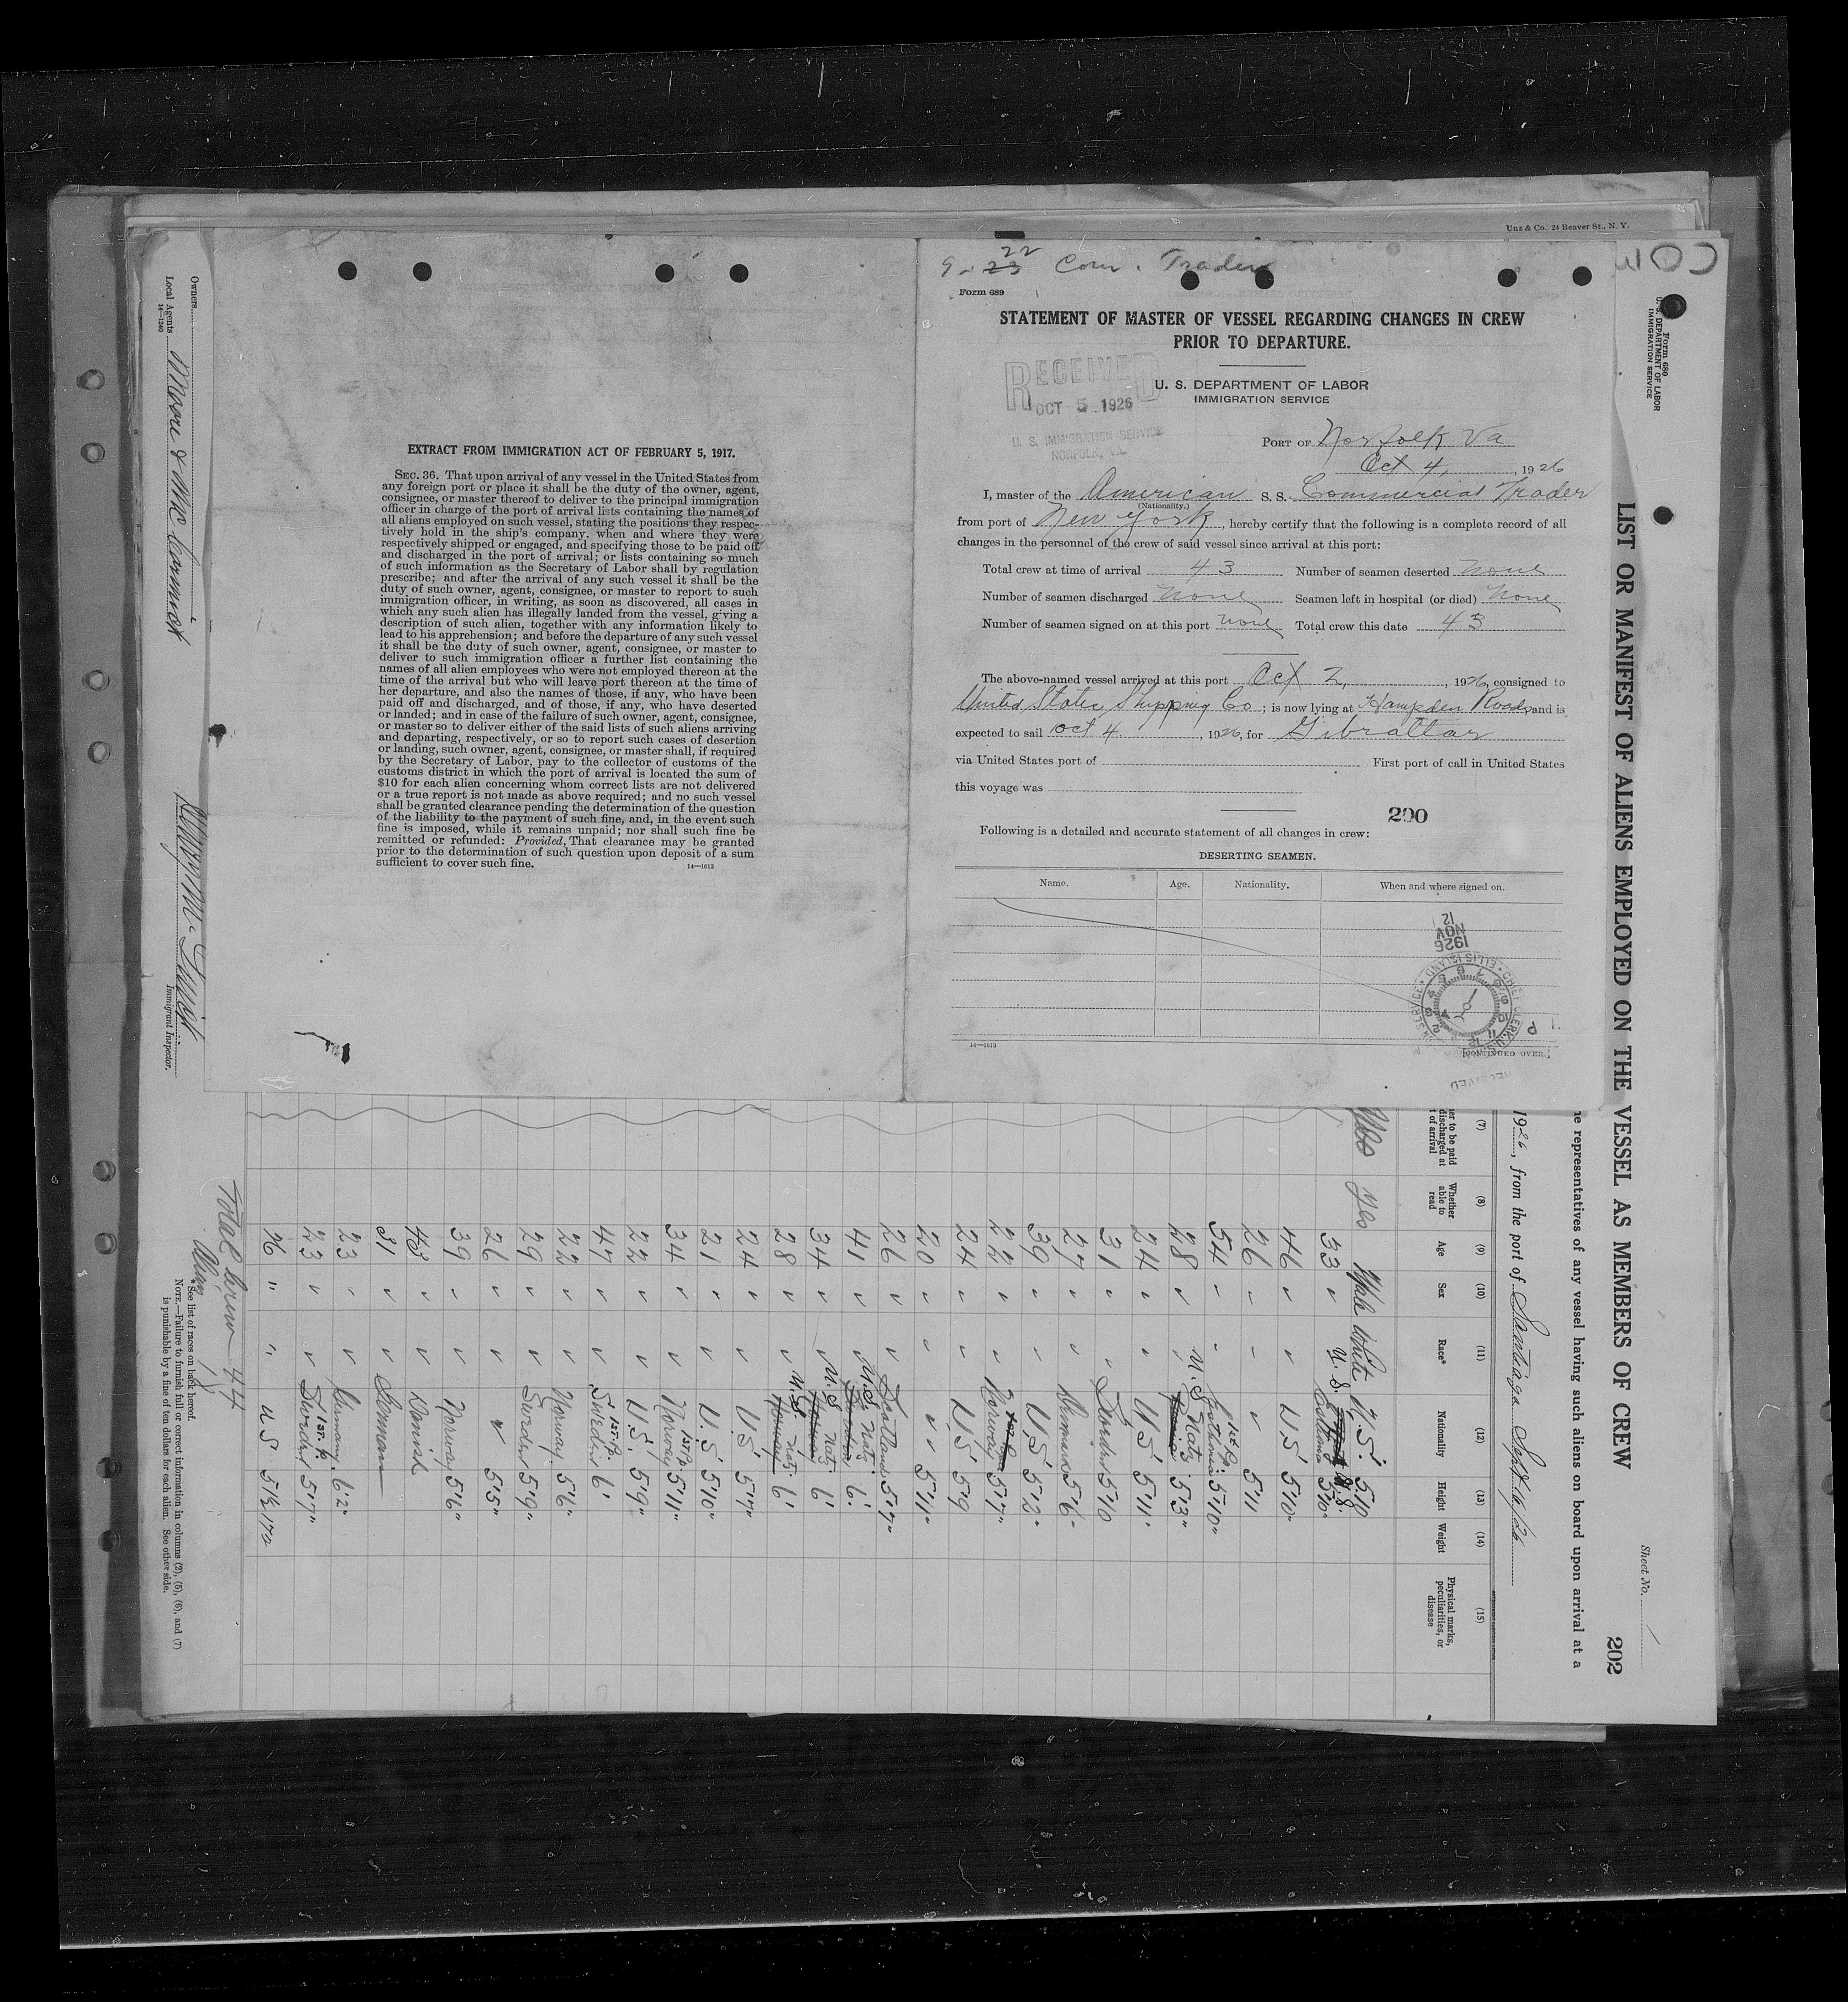 Unz & Co., 24 Beaver St., N. Y.
9- 23 22 Com. Trader
Form 689
STATEMENT OF MASTER OF VESSEL REGARDING CHANGES IN CREW
PRIOR TO DEPARTURE.
RECEIVED
OCT 5 1926
U. S. IMMIGRATION SERVICE
NORFOLK, VA
U. S. DEPARTMENT OF LABOR
IMMIGRATION SERVICE
PORT OF Norfolk Va
Oct 4, , 1926
I, master of the American S. S. Commercial Trader
(Nationality.)
from port of New York, hereby certify that the following is a complete record of all
changes in the personnel of the crew of said vessel since arrival at this port:
Total crew at time of arrival 43 Number of seamen deserted None
Number of seamen discharged None Seamen left in hospital (or died) None
Number of seamen signed on at this port None Total crew this date 43
The above-named vessel arrived at this port Oct 2, , 1926, consigned to
United States Shipping Co ; is now lying at Hampden Roads, and is
expected to sail Oct 4 , 1926, for Gibraltar
via United States port of First port of call in United States
this voyage was
200
Following is a detailed and accurate statement of all changes in crew:
DESERTING SEAMEN.
Name. Age. Nationality. When and where signed on.
12
NOV
1926
14—1613
[CONTINUED OVER.]
EXTRACT FROM IMMIGRATION ACT OF FEBRUARY 5, 1917.
SEC. 36. That upon arrival of any vessel in the United States from
any foreign port or place it shall be the duty of the owner, agent,
consignee, or master thereof to deliver to the principal immigration
officer in charge of the port of arrival lists containing the names of
all aliens employed on such vessel, stating the positions they respec-
tively hold in the ship's company. when and where they were
respectively shipped or engaged, and specifying those to be paid off
and discharged in the port of arrival; or lists containing so much
of such information as the Secretary of Labor shall by regulation
prescribe; and after the arrival of any such vessel it shall be the
duty of such owner, agent, consignee, or master to report to such
immigration officer, in writing, as soon as discovered, all cases in
which any such alien has illegally landed from the vessel, giving a
description of such alien, together with any information likely to
lead to his apprehension; and before the departure of any such vessel
it shall be the duty of such owner, agent, consignee, or master to
deliver to such immigration officer a further list containing the
names of all alien employees who were not employed thereon at the
time of the arrival but who will leave port thereon at the time of
her departure, and also the names of those, if any, who have been
paid off and discharged, and of those, if any, who have deserted
or landed; and in case of the failure of such owner, agent, consignee,
or master so to deliver either of the said lists of such aliens arriving
and departing, respectively, or so to report such cases of desertion
or landing, such owner, agent, consignee, or master shall, if required
by the Secretary of Labor, pay to the collector of customs of the
customs district in which the port of arrival is located the sum of
$10 for each alien concerning whom correct lists are not delivered
or a true report is not made as above required; and no such vessel
shall be granted clearance pending the determination of the question
of the liability to the payment of such fine, and, in the event such
fine is imposed, while it remains unpaid; nor shall such fine be
remitted or refunded: Provided, That clearance may be granted
prior to the determination of such question upon deposit of a sum
sufficient to cover such fine.
14—1613
Form 680
U. S. DEPARTMENT OF LABOR
IMMIGRATION SERVICE
Sheet No. 1
202
LIST OR MANIFEST OF ALIENS EMPLOYED ON THE VESSEL AS MEMBERS OF CREW
representatives of any vessel having such aliens on board upon arrival at a
1926, from the port of Santiago Sept 16/26
(7) (8) (9) (10) (11) (12) (13) (14) (15)
to be paid discharged at of arrival
Whether able to read
Age
Sex
Race*
Nationality
Height
Weight
Physical marks, peculiarities, or disease
yes Male White U.S. 5 10
33 U.S. 5'10"
46 U.S 5'10"
26 5'11
54 5'10"
28 U.S Natz 5'3"
24 U S 5'11"
31 5'10
27 Denmark 5'6"
39 U.S 5'12"
22 Norway 5'7"
24 U.S 5'9
20 5'11"
26 Scotland 5'7"
41 U.S Natz 6'
34 U.S Natz 6'
28 U.S. Natz 6'
24 U.S 5'7"
21 U.S 5'10"
34 1st P. Norway 5'11"
22 U.S. 5'9"
47 1st P. Sweden 6'
22 Norway 5'6"
29 Sweden 5'9"
26 5'5"
39 Norway 5'6"
43
31 German
23 Germany 6'2"
23 1st P. Sweden 5'7"
26 " " U S 5 1/2 172
Total Crew 44
*See list of races on back hereof.
NOTE.—Failure to furnish full or correct information in columns (2), (5), (6), and (7)
is punishable by a fine of ten dollars for each alien. See other side.
Owners
Local Agents Moore & McCormick
14—1240
Immigrant Inspector.